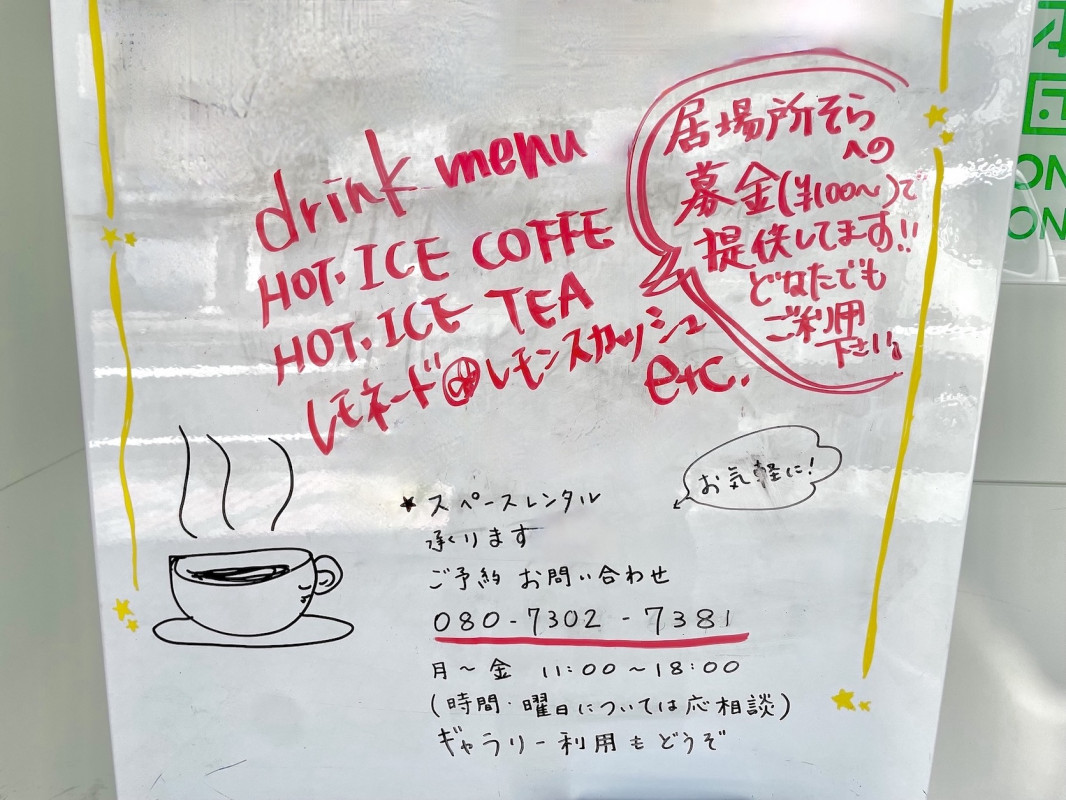 drink menu
HOT・ICE COFFE
HOT・ICE TEA
レモネード レモンスカッシュ
etc.
居場所そら
への
募金(¥100〜)で
提供してます!!
どなたでも
ご利用
下さい。
お気軽に!
★スペースレンタル
承ります
ご予約 お問い合わせ
080-7302-7381
月〜金 11:00〜18:00
(時間・曜日については応相談)
ギャラリー利用もどうぞ
ON
ON